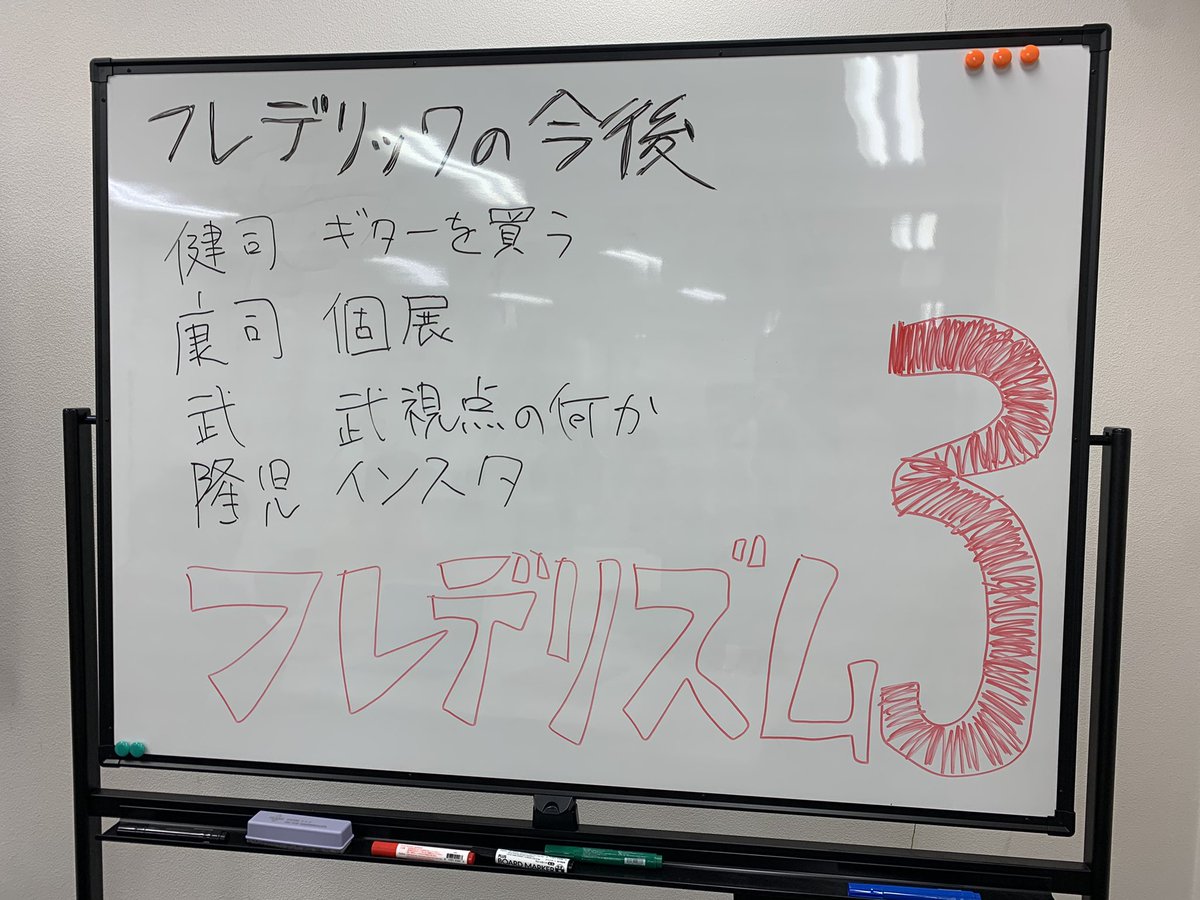 フレデリックの今後
健司 ギターを買う
康司 個展
武 武視点の何か
隆児 インスタ
フレデリズム3
BOARD MARKER